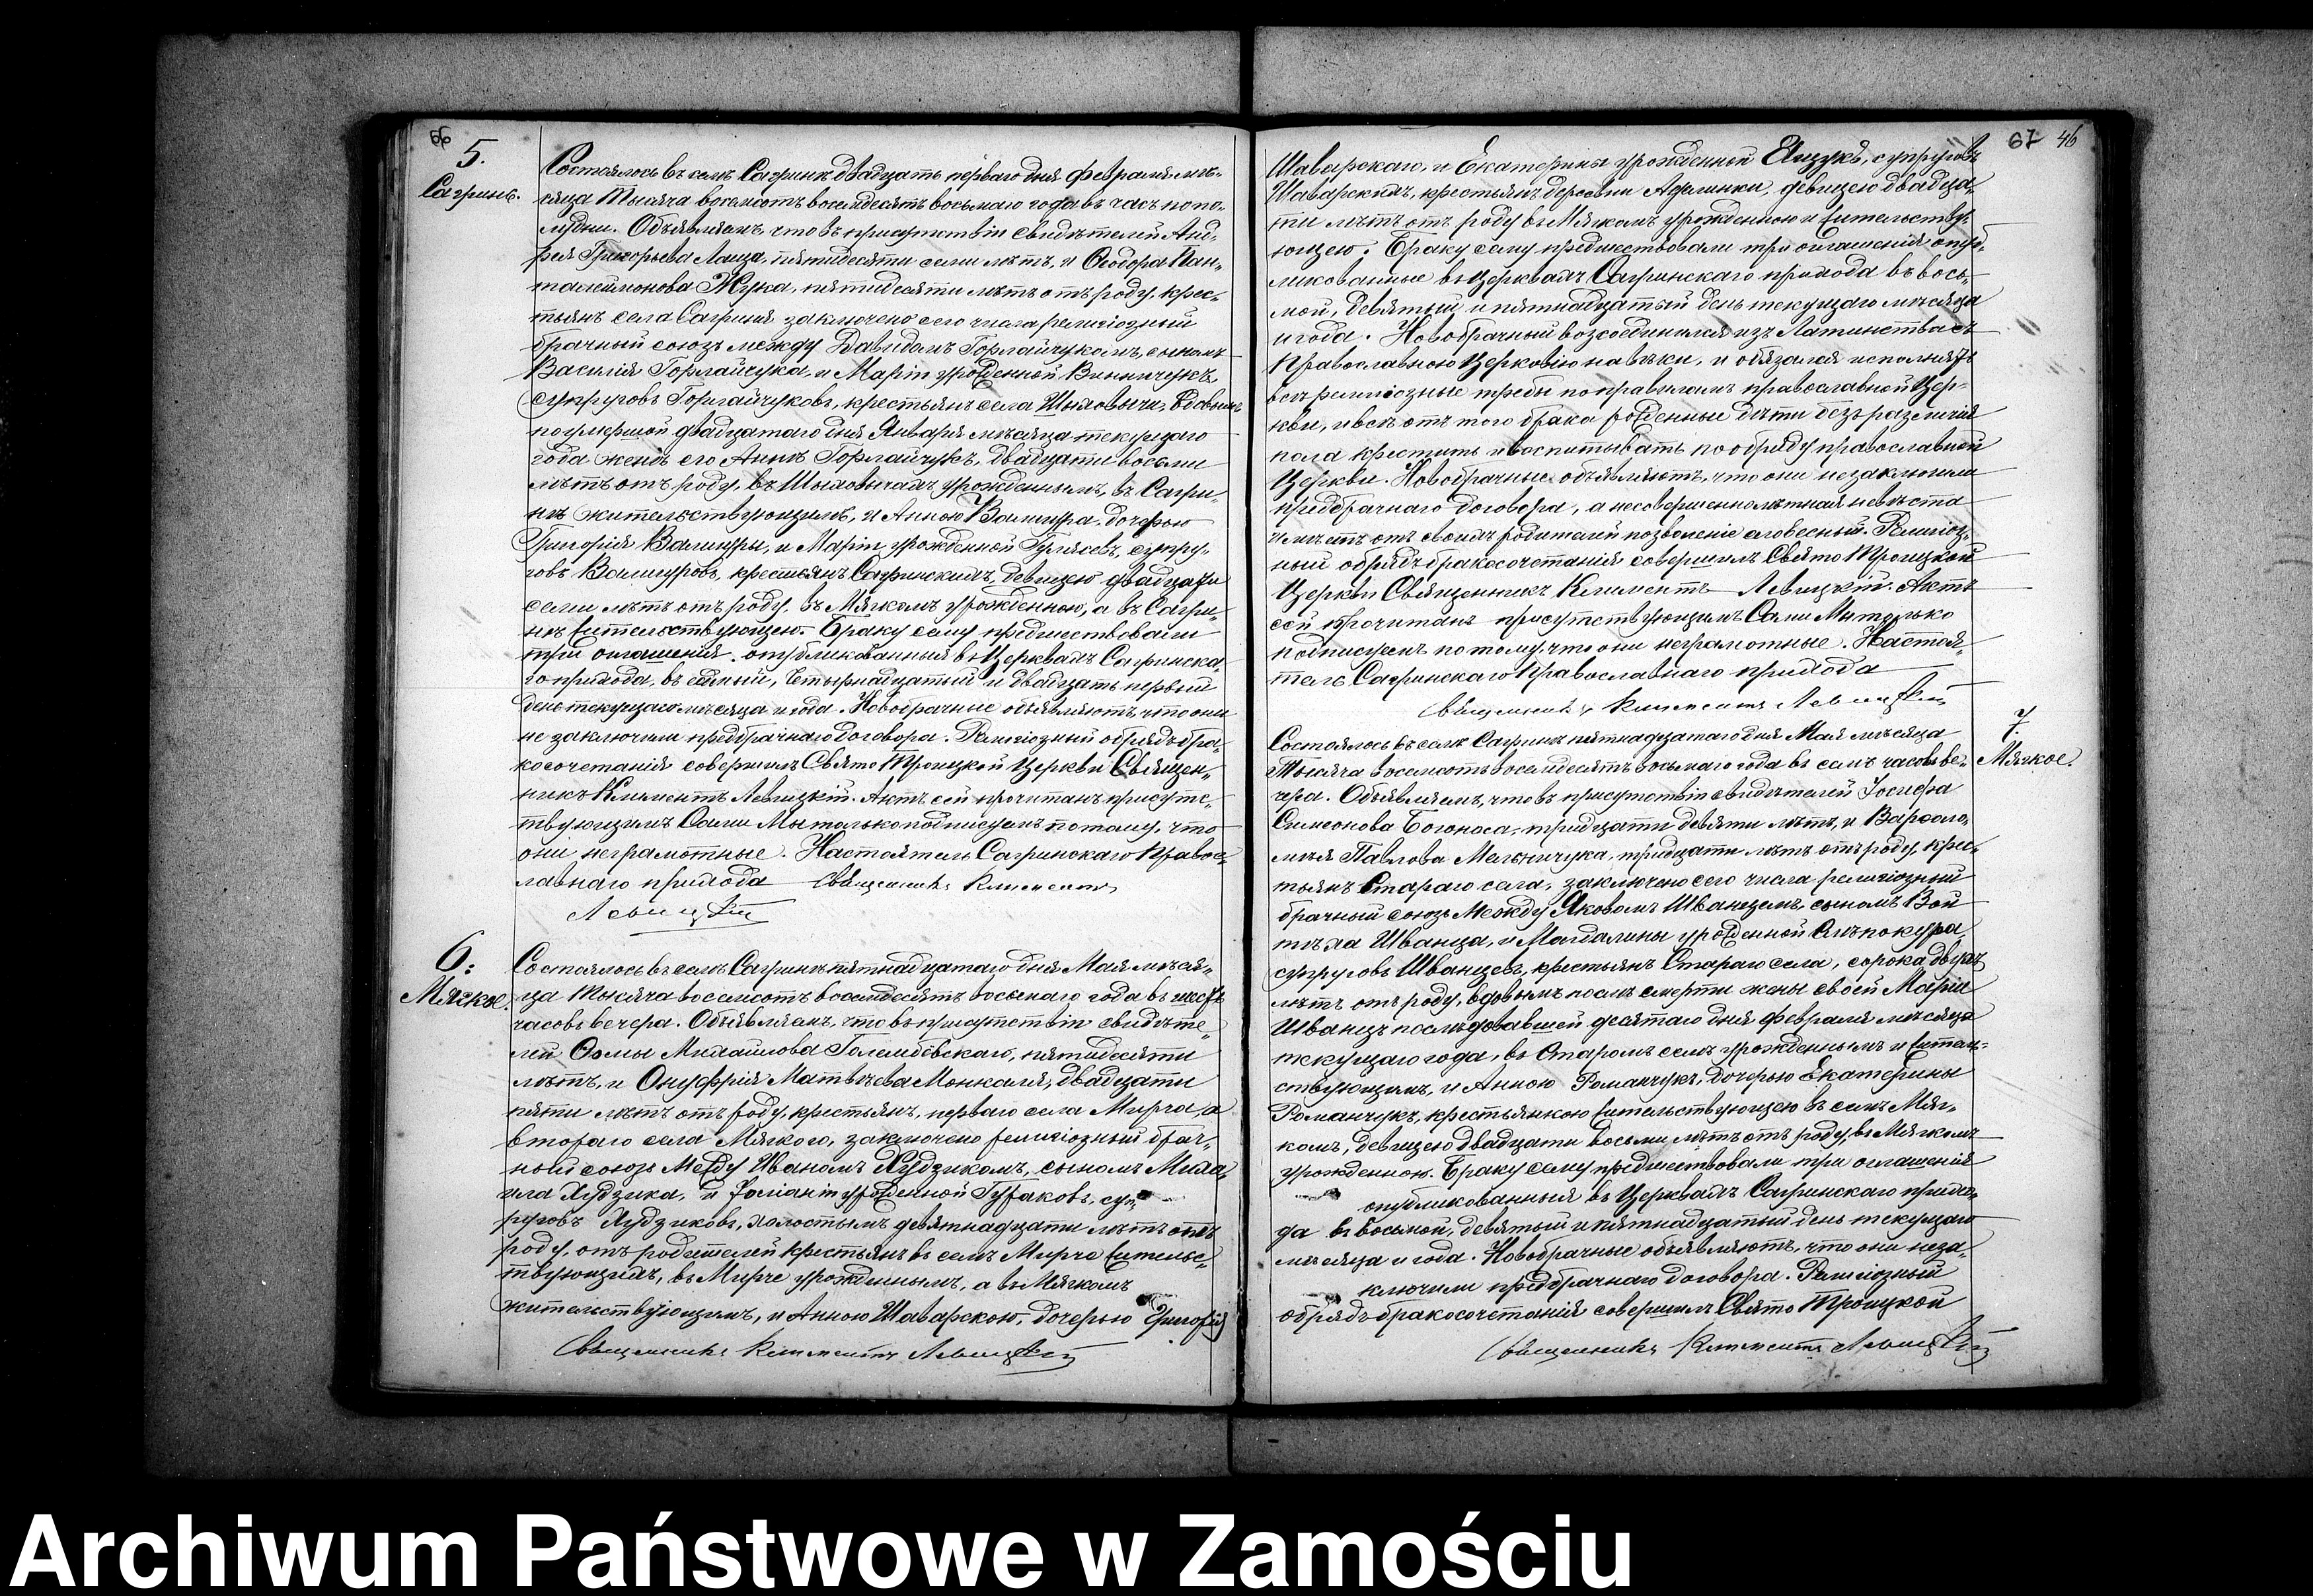 66
5.
Сагринь.
Состоялось въ селѣ Сагринѣ двадцать перваго дня Февраля мѣ-
сяца тысяча восемсотъ восемдесятъ восьмаго года въ часъ попо-
лудни. Объявляемъ, что въ присутствіи свидѣтелей Анд-
рея Григорьева Лаща, пятидесяти семи лѣтъ, и Ѳеодора Пан-
талеймонова Жука, пятидесяти лѣтъ отъ роду, крес-
тьянъ села Сагриня заключено сего числа религіозный
брачный союзъ между Давидомъ Горлайчукомъ, сыномъ
Василія Горлайчука, и Маріи урожденной Винничукъ,
супруговъ Горлайчуковъ, крестьянъ села Шиховичи, вдовымъ
по умершой двадцатаго дня Января мѣсяца текущаго
года женѣ его Аннѣ Горлайчукъ, двадцати восьми
лѣтъ отъ роду, въ Шиховичахъ урожденнымъ, въ Сагри-
нѣ жительствующимъ, и Анною Валишра, дочерью
Григорія Валишры, и Маріи урожденной супру-
говъ крестьянъ Сагринскихъ, девицею двадцати
семи лѣтъ отъ роду, въ Мягкомъ урожденною, а въ Сагри-
нѣ жительствующею. Браку сему предшествовали
три оглашенія, опубликованный въ Церквахъ Сагринска-
го прихода, въ седмый, четырнадцатый и двадцать первый
день текущаго мѣсяца и года. Новобрачные объявляютъ, что они
не заключили предбрачнаго договора. Религіозный обрядъ бра-
косочетанія совершилъ Свято Троицкой Церкви Священ-
никъ Климентъ Левицкій. Актъ сей прочитанъ присутс-
твующимъ Сами Мы только подписуемъ потому, что
они неграмотные. Настоятель Сагринскаго Правос-
лавнаго прихода Священникъ Климентъ
Левицкій
6:
Мягкое.
Состоялось въ селѣ Сагринѣ пятнадцатаго дня Мая мѣся-
ца тысяча восемсотъ восемдесятъ восьмаго года въ шесть
часовъ вечера. Объявляемъ, что въ присутствіи свидѣте-
лей Ѳомы Михайлова Голембёвскаго, пятидесяти
лѣтъ, и Онуфрія Матвѣева Монкаля, двадцати
пяти лѣтъ отъ роду, крестьянъ, перваго села Мирча, а
втораго села Мягкого, заключено религіозный брач-
ный союзъ Между Иваномъ Худзикомъ, сыномъ Миха-
ила Худзика, и Юліаніи урожденной Гураковъ, суп-
руговъ Худзиковъ, холостымъ девятнадцати лѣтъ отъ
роду, отъ родителей крестьянъ въ селѣ Мирче жительс-
твующихъ, въ Мирче урожденнымъ, а въ Мягкомъ
жительствующимъ, и Анною Шаварскою, дочерью Григорія
Священникъ Климентъ Левицкій
67 46
Шаварскаго, и Екатерины урожденной супруговъ
Шаварскихъ, крестьянъ деревни Аделинки, девицею двадца-
ти лѣтъ отъ роду въ Мягкомъ урожденною и жительству-
ющею. Браку сему предшествовали три оглашенія опуб-
ликованные въ Церквахъ Сагринскаго прихода въ вось-
мой, девятый и пятнадцатый день текущаго мѣсяца
и года. Новобрачный возсоединился изъ Латинства съ
Православною Церковію навѣки, и обязался исполнять
всѣ религіозные требы по правиламъ православной Цер-
кви, и всѣ отъ того брака рожденные дѣти безъ различія
пола крестить и воспитывать по обряду православной
Церкви. Новобрачные объявляютъ, что они не заключили
предбрачнаго договора, а несовершеннолѣтняя невѣста
имѣетъ отъ своихъ родителей позволеніе словесный. Религіоз-
ный обрядъ бракосочетанія совершилъ Свято Троицкой
Церкви Священникъ Климентъ Левицкій. Актъ
сей прочитанъ присутствующимъ Сами Мы только
подписуемъ потому, что они неграмотные. Настоя-
тель Сагринскаго Православнаго прихода
Священникъ Климентъ Левицкій
7.
Мягкое.
Состоялось въ селѣ Сагринѣ пятнадцатаго дня Мая мѣсяца
тысяча восемсотъ восемдесятъ восьмаго года въ семь часовъ ве-
чера. Объявляемъ, что въ присутствіи свидѣтелей Іосифа
Симеонова Богоноса, тридцати девяти лѣтъ, и Варѳоло-
мея Павлова Мельничука, тридцати лѣтъ отъ роду, крес-
тьянъ Стараго села, заключено сего числа религіозный
брачный союзъ Между Яковомъ Шванцемъ, сыномъ Вой-
тѣха Шванца, и Магдалины урожденной Слѣпокура,
супруговъ Шванцевъ, крестьянъ Стараго села, сорока двухъ
лѣтъ отъ роду, вдовымъ послѣ смерти жены своей Маріи
Шванцъ послѣдовавшей десятаго дня Февраля мѣсяца
текущаго года, въ Старомъ селѣ урожденнымъ и житель-
ствующимъ, и Анною Романчукъ, дочерью Екатерины
Романчукъ, крестьянкою жительствующею въ селѣ Мяг-
комъ, девицею двадцати восьми лѣтъ отъ роду, въ Мягкомъ
урожденною. Браку сему предшествовали три оглашенія
опубликованныя въ Церквахъ Сагринскаго прихо-
да въ восьмой, девятый и пятнадцатый день текущаго
мѣсяца и года. Новобрачные объявляютъ, что они неза-
ключили предбрачнаго договора. Религіозный
обрядъ бракосочетанія совершилъ Свято Троицкой
Священникъ Климентъ Левицкій
Archiwum Państwowe w Zamościu